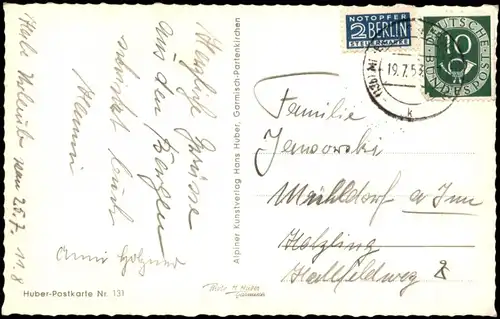 Herzliche Grüsse
aus den Bergen
sendet Euch
Hanni
Habe Urlaub vom 25.7. 11.8
Anni Holzner
Huber-Postkarte Nr. 131
Alpiner Kunstverlag Hans Huber, Garmisch-Partenkirchen
Photo H. Huber
Garmisch
NOTOPFER
2 BERLIN
STEUERMARKE
19.7.53
k
DEUTSCHE BUNDESPOST
10
Familie
Mühldorf a Inn
Holzling